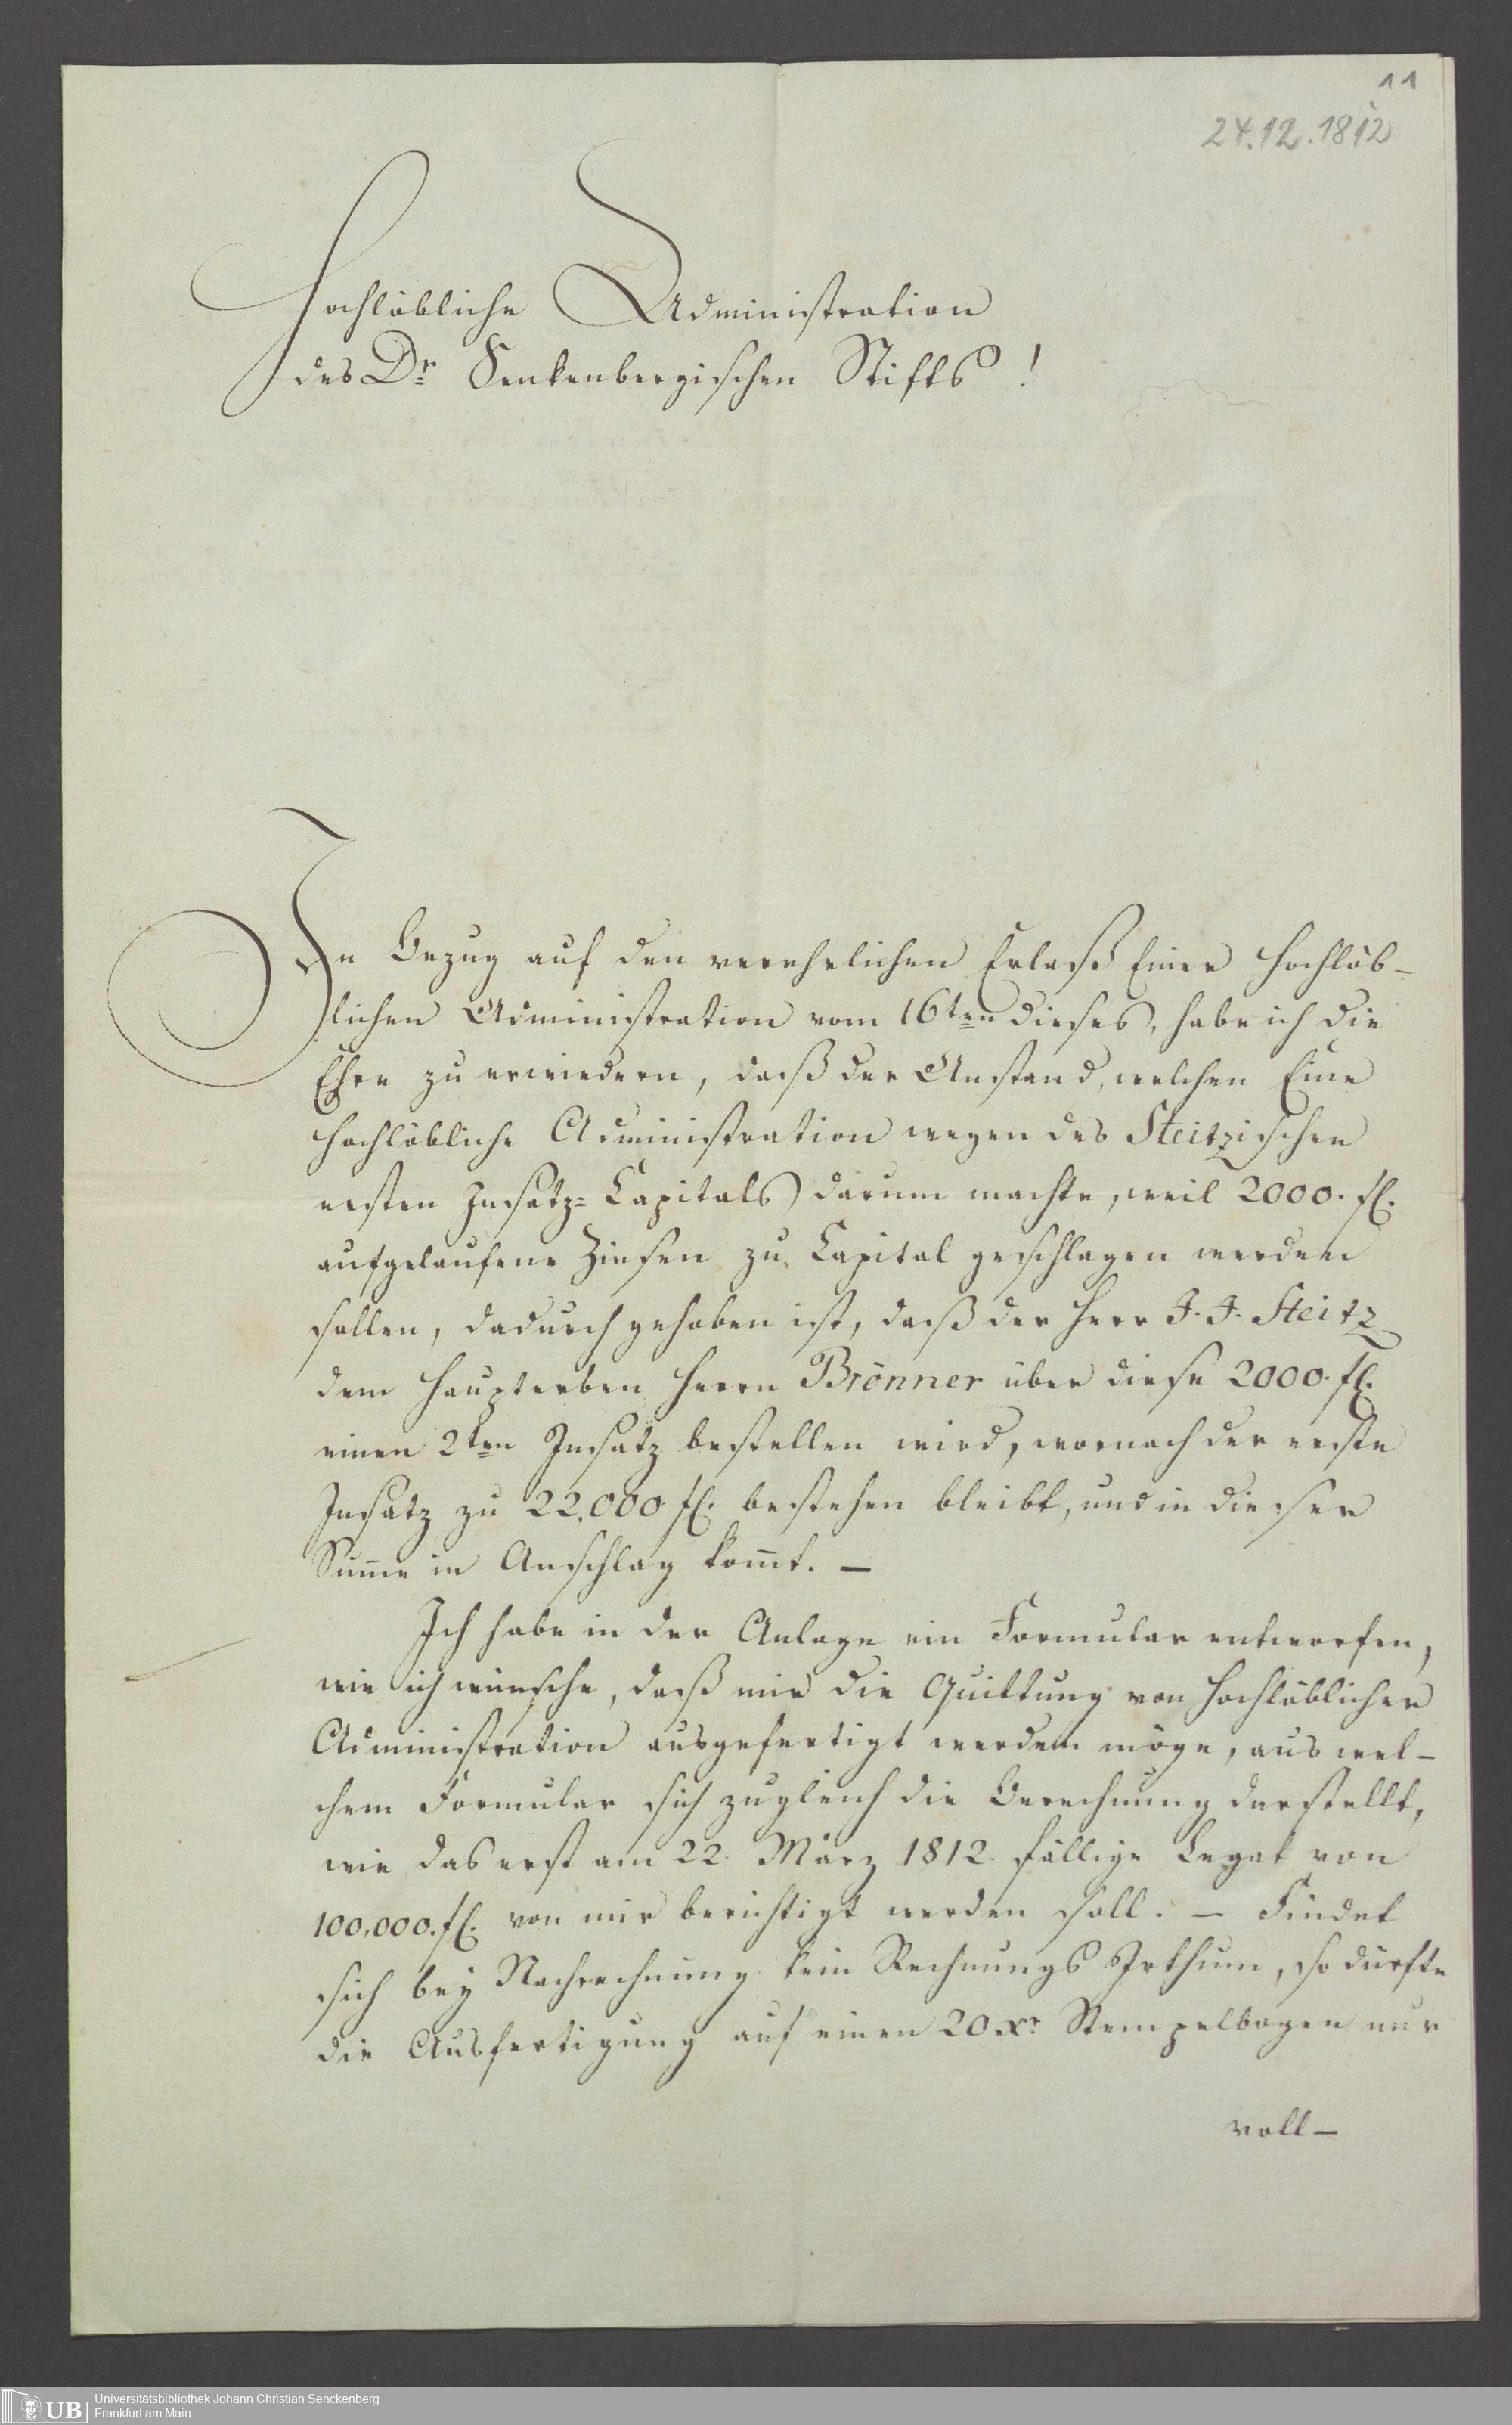 11
24.12.1812
Hochlöbliche Administration
des Dr Senkenbergischen Stifts!
In Bezug auf den verehrlichen Erlaß Einer Hochlöb-
lichen Administration vom 16ten dieses, habe ich die
Ehre zu erwiedern, daß der Anstand, welchen Eine
Hochlöbliche Administration wegen des Steitzischen
ersten Insatz-Capitals darum machte, weil 2000. fl.
aufgelaufene Zinsen zu Capital geschlagen werden
sollen, dadurch gehoben ist, daß der Herr J. J. Steitz
dem Haupterben Herrn Brönner über diese 2000. fl.
einen 2ten Insatz bestellen wird, wornach der erste
Insatz zu 22,000 fl. bestehen bleibt, und in dieser
Sum̄e in Anschlag kom̄t. –
Ich habe in der Anlage ein Formular entworfen,
wie ich wünsche, daß mir die Quittung von Hochlöblicher
Administration ausgefertigt werden möge, aus wel-
chem Formular sich zugleich die Berechnung darstellt,
wie das erst am 22. März 1812. fällige Legat von
100,000. fl. von mir berichtigt werden soll. – Findet
sich bey Nachrechnung kein Rechnungs Irthum, so dürfte
die Ausfertigung auf einen 20 xr Stempelbogen nur
voll-
UB
Universitätsbibliothek Johann Christian Senckenberg
Frankfurt am Main